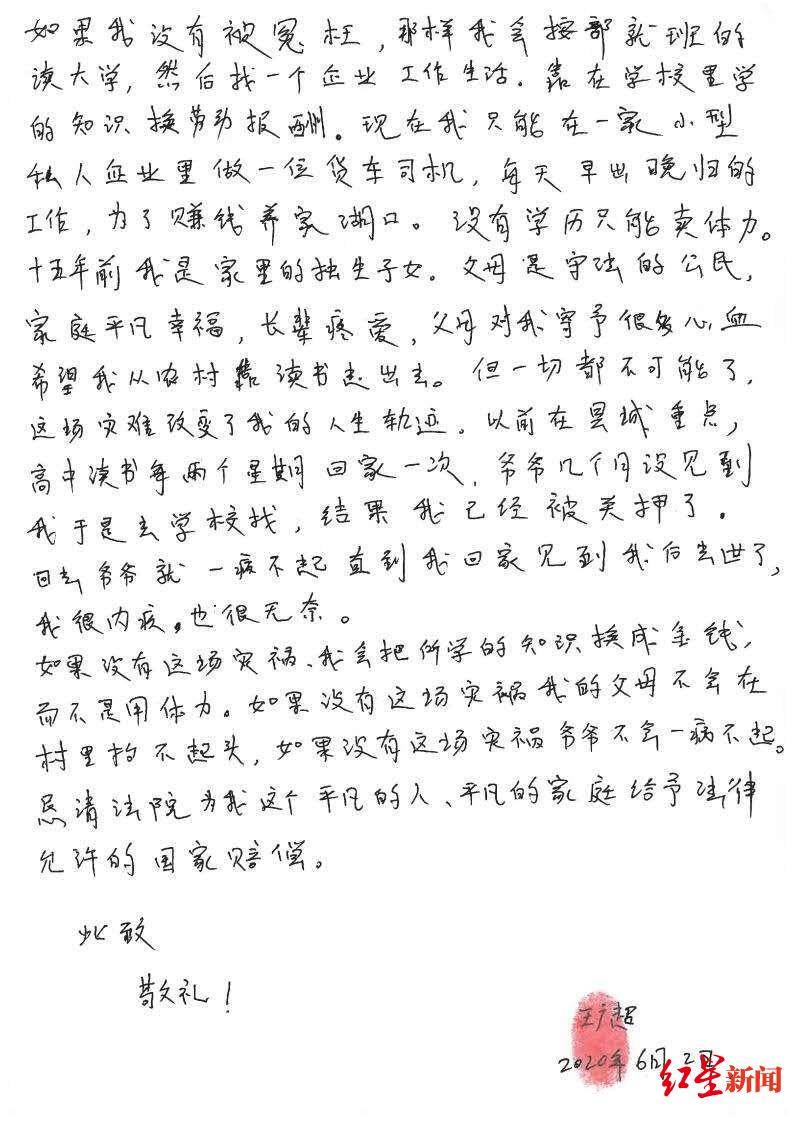 如果我没有被冤枉，那样我会按部就班的
读大学，然后找一个企业工作生活．靠在学校里学
的知识换劳动报酬。现在我只能在一家小型
私人企业里做一位货车司机，每天早出晚归的
工作，为了赚钱养家湖口。没有学历只能卖体力。
十五年前我是家里的独生子女。父母是守法的公民，
家庭平凡幸福，长辈疼爱，父母对我寄予很多心血
希望我从农村靠读书走出去。但一切都不可能了，
这场灾难改变了我的人生轨迹。以前在县城重点，
高中读书每两个星期回家一次，爷爷几个月没见到
我于是去学校找，结果我已经被关押了．
回去爷爷就一病不起直到我回家见到我后去世了，
我很内疚。也很无奈。
如果没有这场灾祸、我会把所学的知识换成金钱，
而不是用体力。如果没有这场灾祸我的父母不会在
村里抬不起头，如果没有这场灾祸爷爷不会一病不起。
恳请法院为我这个平凡的人、平凡的家庭给予法律
允许的国家赔偿。
此致
敬礼！
王广超
2020年6月2日
红星新闻